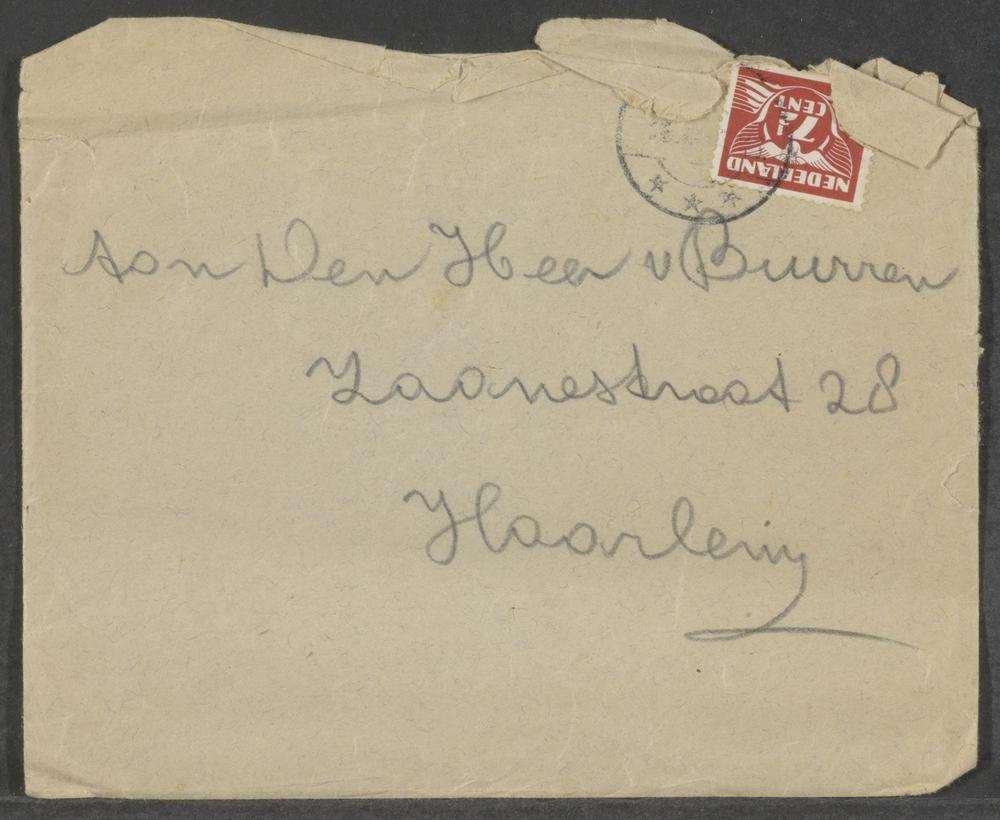 NEDERLAND
7½
CENT
Aan Den Heer v Buurren
Zaanestraat 28
Haarlem